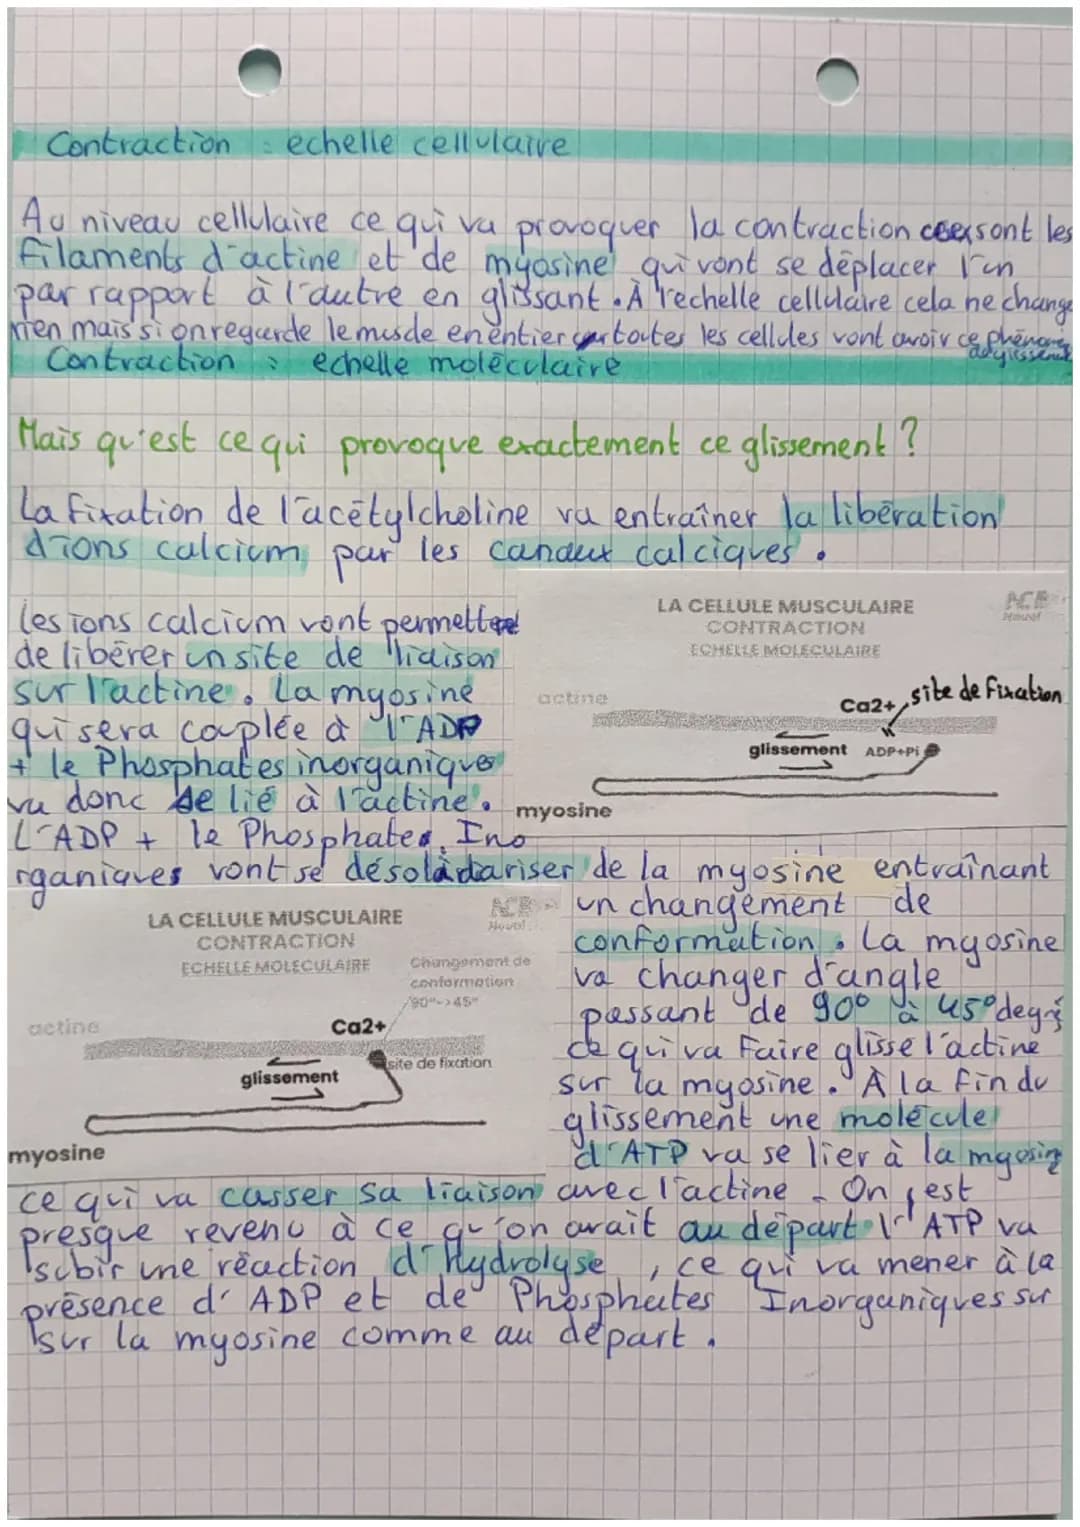 Contraction : echelle cellulaire
Au niveau cellulaire ce qui va provoquer la contraction ce sont les
filaments d'actine et de myosine qui vont se déplacer l'un
par rapport à l'autre en glissant. À l'echelle cellulaire cela ne change
rien mais si on regarde le muscle en entier car toutes les cellules vont avoir ce phénomène
de glissement
Contraction : echelle moléculaire
Mais qu'est ce qui provoque exactement ce glissement ?
La fixation de l'acétylcholine va entraîner la libération
d'ions calcium par les canaux calciques.
les ions calcium vont permettre
de libérer un site de liaison
sur l'actine. La myosine
qui sera couplée à l'ADP
+ le Phosphates inorganiques
va donc se lié à l'actine.
L'ADP + le Phosphates Ino
rganiques vont se désoladariser de la myosine entraînant
LA CELLULE MUSCULAIRE
CONTRACTION
ECHELLE MOLECULAIRE
actine
Ca2+
site de fixation
glissement
ADP+Pi
myosine
un changement de
conformation. La myosine
va changer d'angle
passant de 90° à 45° degrés
ce qui va faire glisse l'actine
sur la myosine. À la fin du
glissement une molécule
d'ATP va se lier à la myosine
LA CELLULE MUSCULAIRE
CONTRACTION
ECHELLE MOLECULAIRE
Changement de
conformation
90°->45°
actine
Ca2+
site de fixation
glissement
myosine
ce qui va casser sa liaison avec l'actine. On est
presque revenu à ce qu'on avait au départ l'ATP va
subir une réaction d'hydrolyse, ce qui va mener à la
présence d'ADP et de Phosphates Inorganiques sur
sur la myosine comme au départ.